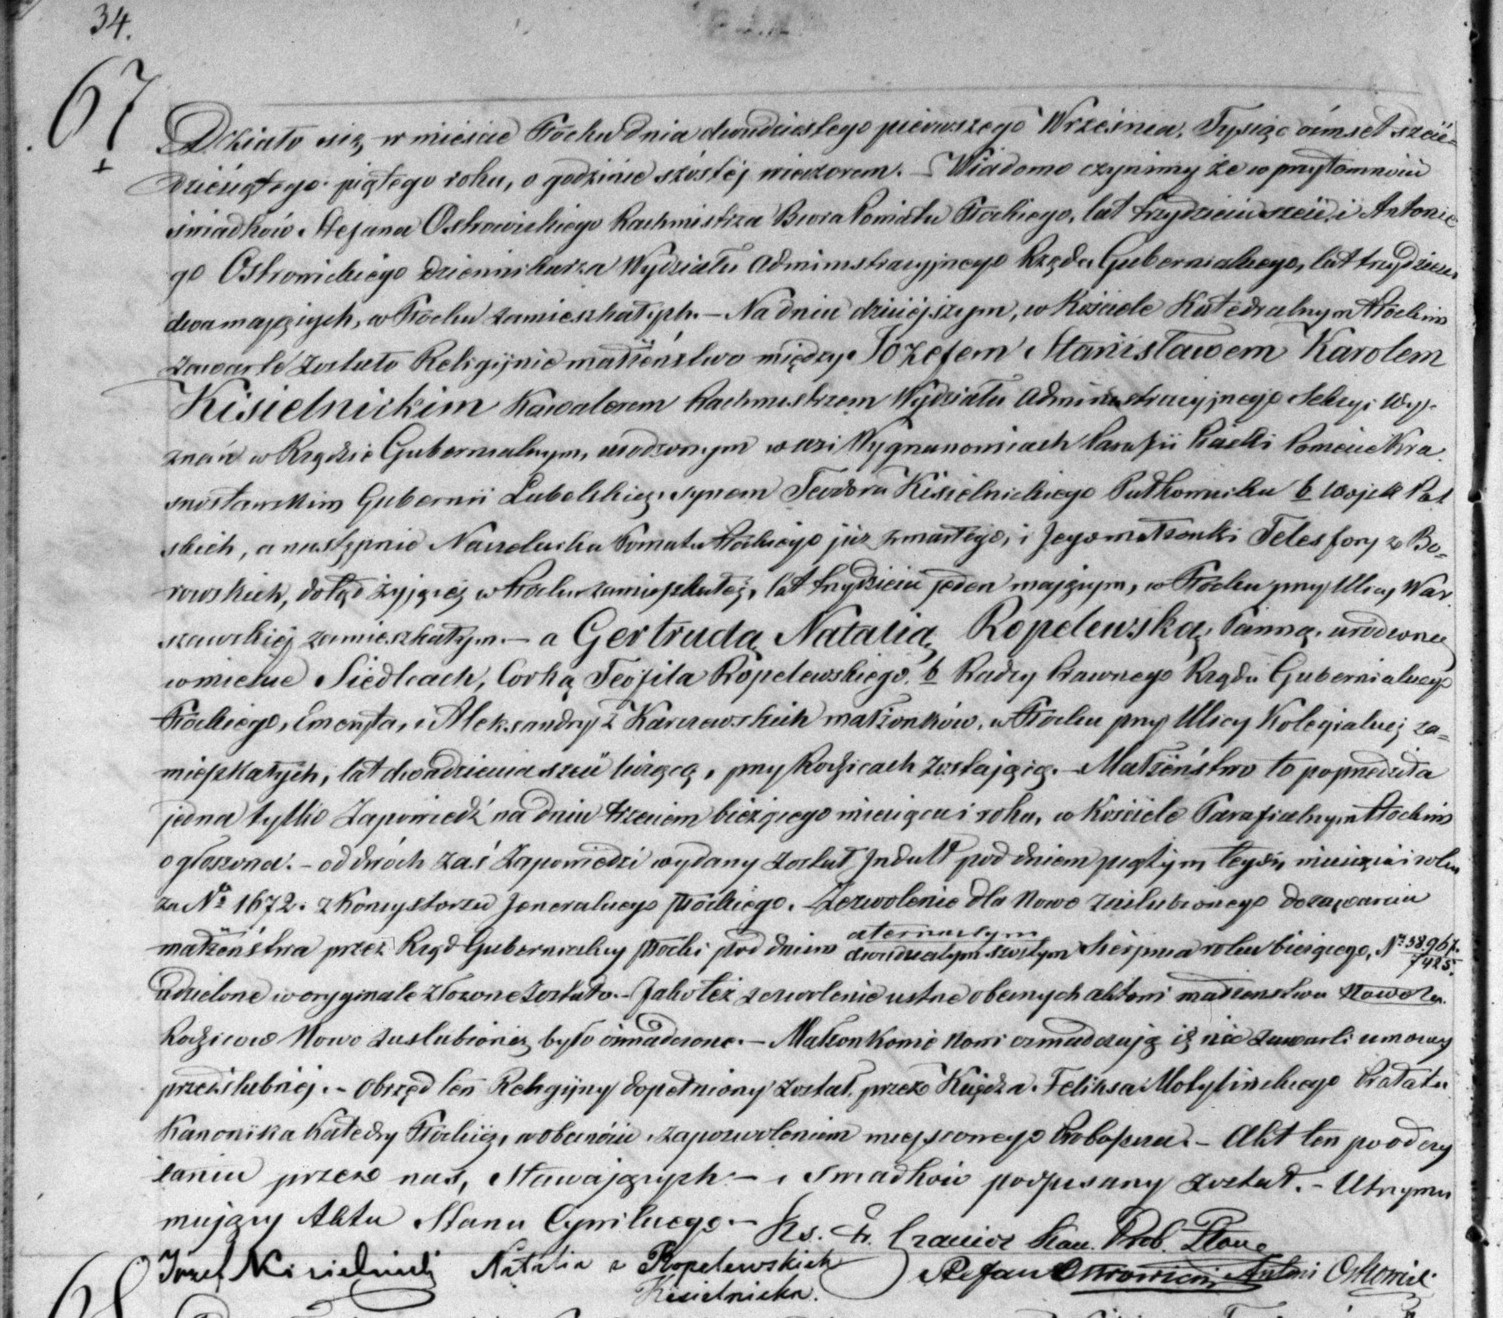 34.
67
Działo się w mieście Płocku dnia dwudziestego pierwszego Września, Tysiąc ośmset sześć=
dziesiątego piątego roku, o godzinie szóstej wieczorem. – Wiadomo czynimy że w przytomności
świadków Stefana Ostrowickiego Rachmistrza Biura Powiatu Płockiego, lat trzydzieści sześć, i Antonie
go Ostrowickiego Dziennikarza Wydziału Administracyjnego Rządu Gubernialnego, lat trzydzieści
dwa mających, w Płocku zamieszkałych. – Na dniu dzisiejszym, w Kościele Katedralnym Płockim
zawarte zostało Religijnie małżeństwo między Józefem Stanisławem Karolem
Kisielnickim Kawalerem Rachmistrzem Wydziału Administracyjnego Sekcyi Wy-
znań w Rządzie Gubernialnym, urodzonym w wsi Wygnanowicach Parafii Powiecie Kra
snostawskim Gubernii Lubelskiej, synem Teodora Kisielnickiego Pułkownika b. Wojsk Pol
skich, a następnie Naczelnika Powiatu Płockiego już zmarłego, i Jego małżonki Telesfory z Bo=
rowskich, dotąd żyjącej w Płocku zamieszkałej, lat trzydzieści jeden mającym, w Płocku przy Ulicy War
szawskiej zamieszkałym. – a Gertrudą Natalią Ropelewską, Panną, urodzoną
w mieście Siedlcach, Córką Teofila Ropelewskiego, b. Radcy Prawnego Rządu Gubernialnego
Płockiego, Emeryta, i Aleksandry z Karczewskich małżonków, w Płocku przy Ulicy Kolegialnej za=
mieszkałych, lat dwadzieścia sześć liczącą, przy Rodzicach zostającą. – Małżeństwo to poprzedziła
jedna tylko Zapowiedź na dniu trzecim bieżącego miesiąca i roku, w Kościele Parafialnym Płockim
ogłoszona. – od dwóch zaś Zapowiedzi wydany został Indult pod dniem piątym tegoż miesiąca i roku
za No 1672. z Konsystorza Jeneralnego Płockiego. – Zezwolenie dla Nowo Zaślubionego do zawarcia
czternastym
małżeństwa przez Rząd Gubernialny Płocki pod dniem dwudziestym szóstym Sierpnia roku bieżącego, No 38.967./7425.
udzielone w oryginale złożone zostało. – Jako też zezwolenie ustne obecnych aktowi małżeństwa
Rodziców Nowo Zaślubionej było oświadczone. – Małżonkowie Nowi oświadczają iż nie zawarli umowy
przedślubnej. – Obrzęd ten Religijny dopełniony został przez Księdza Feliksa Motylińskiego Prałata
Kanonika Katedry Płockiej, w obecności i za pozwoleniem miejscowego Proboszcza. – Akt ten po odczy
taniu przez nas, Stawających – i Świadków podpisany został. – Utrzymu
mujący Akta Stanu Cywilnego. – Ks. Kan. Prob. Płoc.
Józef Kisielnicki Natalia z Ropelewskich
Kisielnicka. Stefan Ostrowicki Antoni Ostrowicki
68